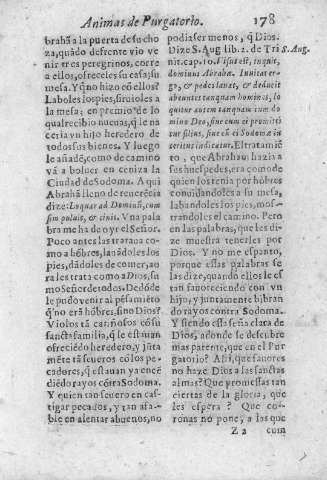 Animas de Purgatorio. 178
brahā a la puerta de su cho
za, quādo defrente vio ve
nir tres peregrinos, corre
a ellos, ofreceles su casa; su
mesa. Y q̃ no hizo cō ellos?
Laboles los pies, siruioles a
la mesa; en premio de lo
qual recibio nueuas, q̃ le na
ceria vn hijo heredero de
todos sus bienes. Y luego
le añadē, como de camino
vā a boluer en ceniza la
Ciudad de Sodoma. Aqui
Abrahā lleno de reuerēcia
dize: Loquar ad Dominū, cum
sim puluis, & cinis. Vna pala
bra me ha de oyr el Señor.
Poco antes las trataua co-
mo a hōbres, labādoles los
pies, dādoles de comer, ao
ra les trata como a Dios, su
mo Señor de todos. Dedōde
le pudo venir al pēsamiēto
q̃ no erā hōbres, sino Dios?
Violos tā cariñosos cō su
sancta familia, q̃ le estauan
ofreciēdo heredero, y juta
mēte tā seueros cō los pe-
cadores, q̃ estauan ya encē
diēdo rayos cōtra Sodoma.
Y quien tan seuero en cas-
tigar pecados, y tan afa-
ble en alentar abuenos, no
podia ser menos, q̃ Dios.
Dize S. Aug lib. 2. de Tri
nit. cap. 10. Visus est, inquit,
dominus Abrahæ. Inuitat er-
go, & pedes lauat, & deducit
abeuntes tanquam homines, lo
quitur autem tanquam cum do
mino Deo, siue cum ei promitti
tur filius, siue cū ei Sodomæ in
teritus indicatur. El tratamiē
to, que Abrahan hazia a
sus huespedes, era como de
quien los tenia por hōbres
combidandoles a su mesa,
labandoles los pies, mos-
trandoles el camino. Pero
en las palabras, que les di-
ze muestra tenerles por
Dios. Y no me espanto,
porque essas palabras se
las dize, quando ellos le es
tan fauoreciendo con vn
hijo, y juntamente bibran
do rayos contra Sodoma.
Y siendo essa seña clara de
Dios, adonde se descubre
mas patente, que en el Pur
gatorio? Assi, que fauores
no haze Dios a las sanctas
almas? Que promessas tan
ciertas de la gloria, que
les espera? Que co-
ronas no pone, a las que
S Aug.
Z 2 cum